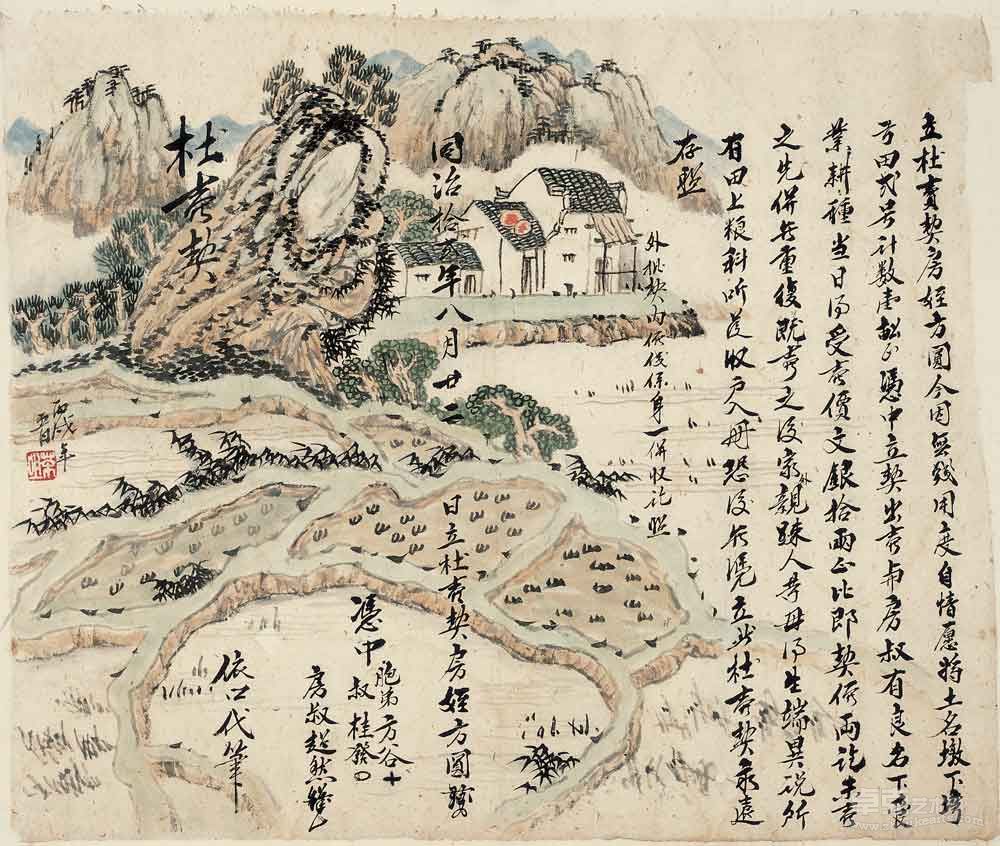 立杜賣契房姪方圓今因無錢用度自情愿將土名墩下
田弍号計數壹畝正憑中立契出賣与房叔有良名下
業耕種当日得受賣價文銀拾兩正比即契價兩訖未賣
之先併無重復既賣之後家外親踈人等毋得生端異說所
有田上粮科所管收戶入冊恐後無憑立此杜賣契永遠
存照
外批契內價後係身一併收訖照
同治拾年八月廿二日立杜賣契房姪方圓
憑中胞弟方谷十
叔桂發〇
房叔起然
依口代筆
杜賣契
丙戌年